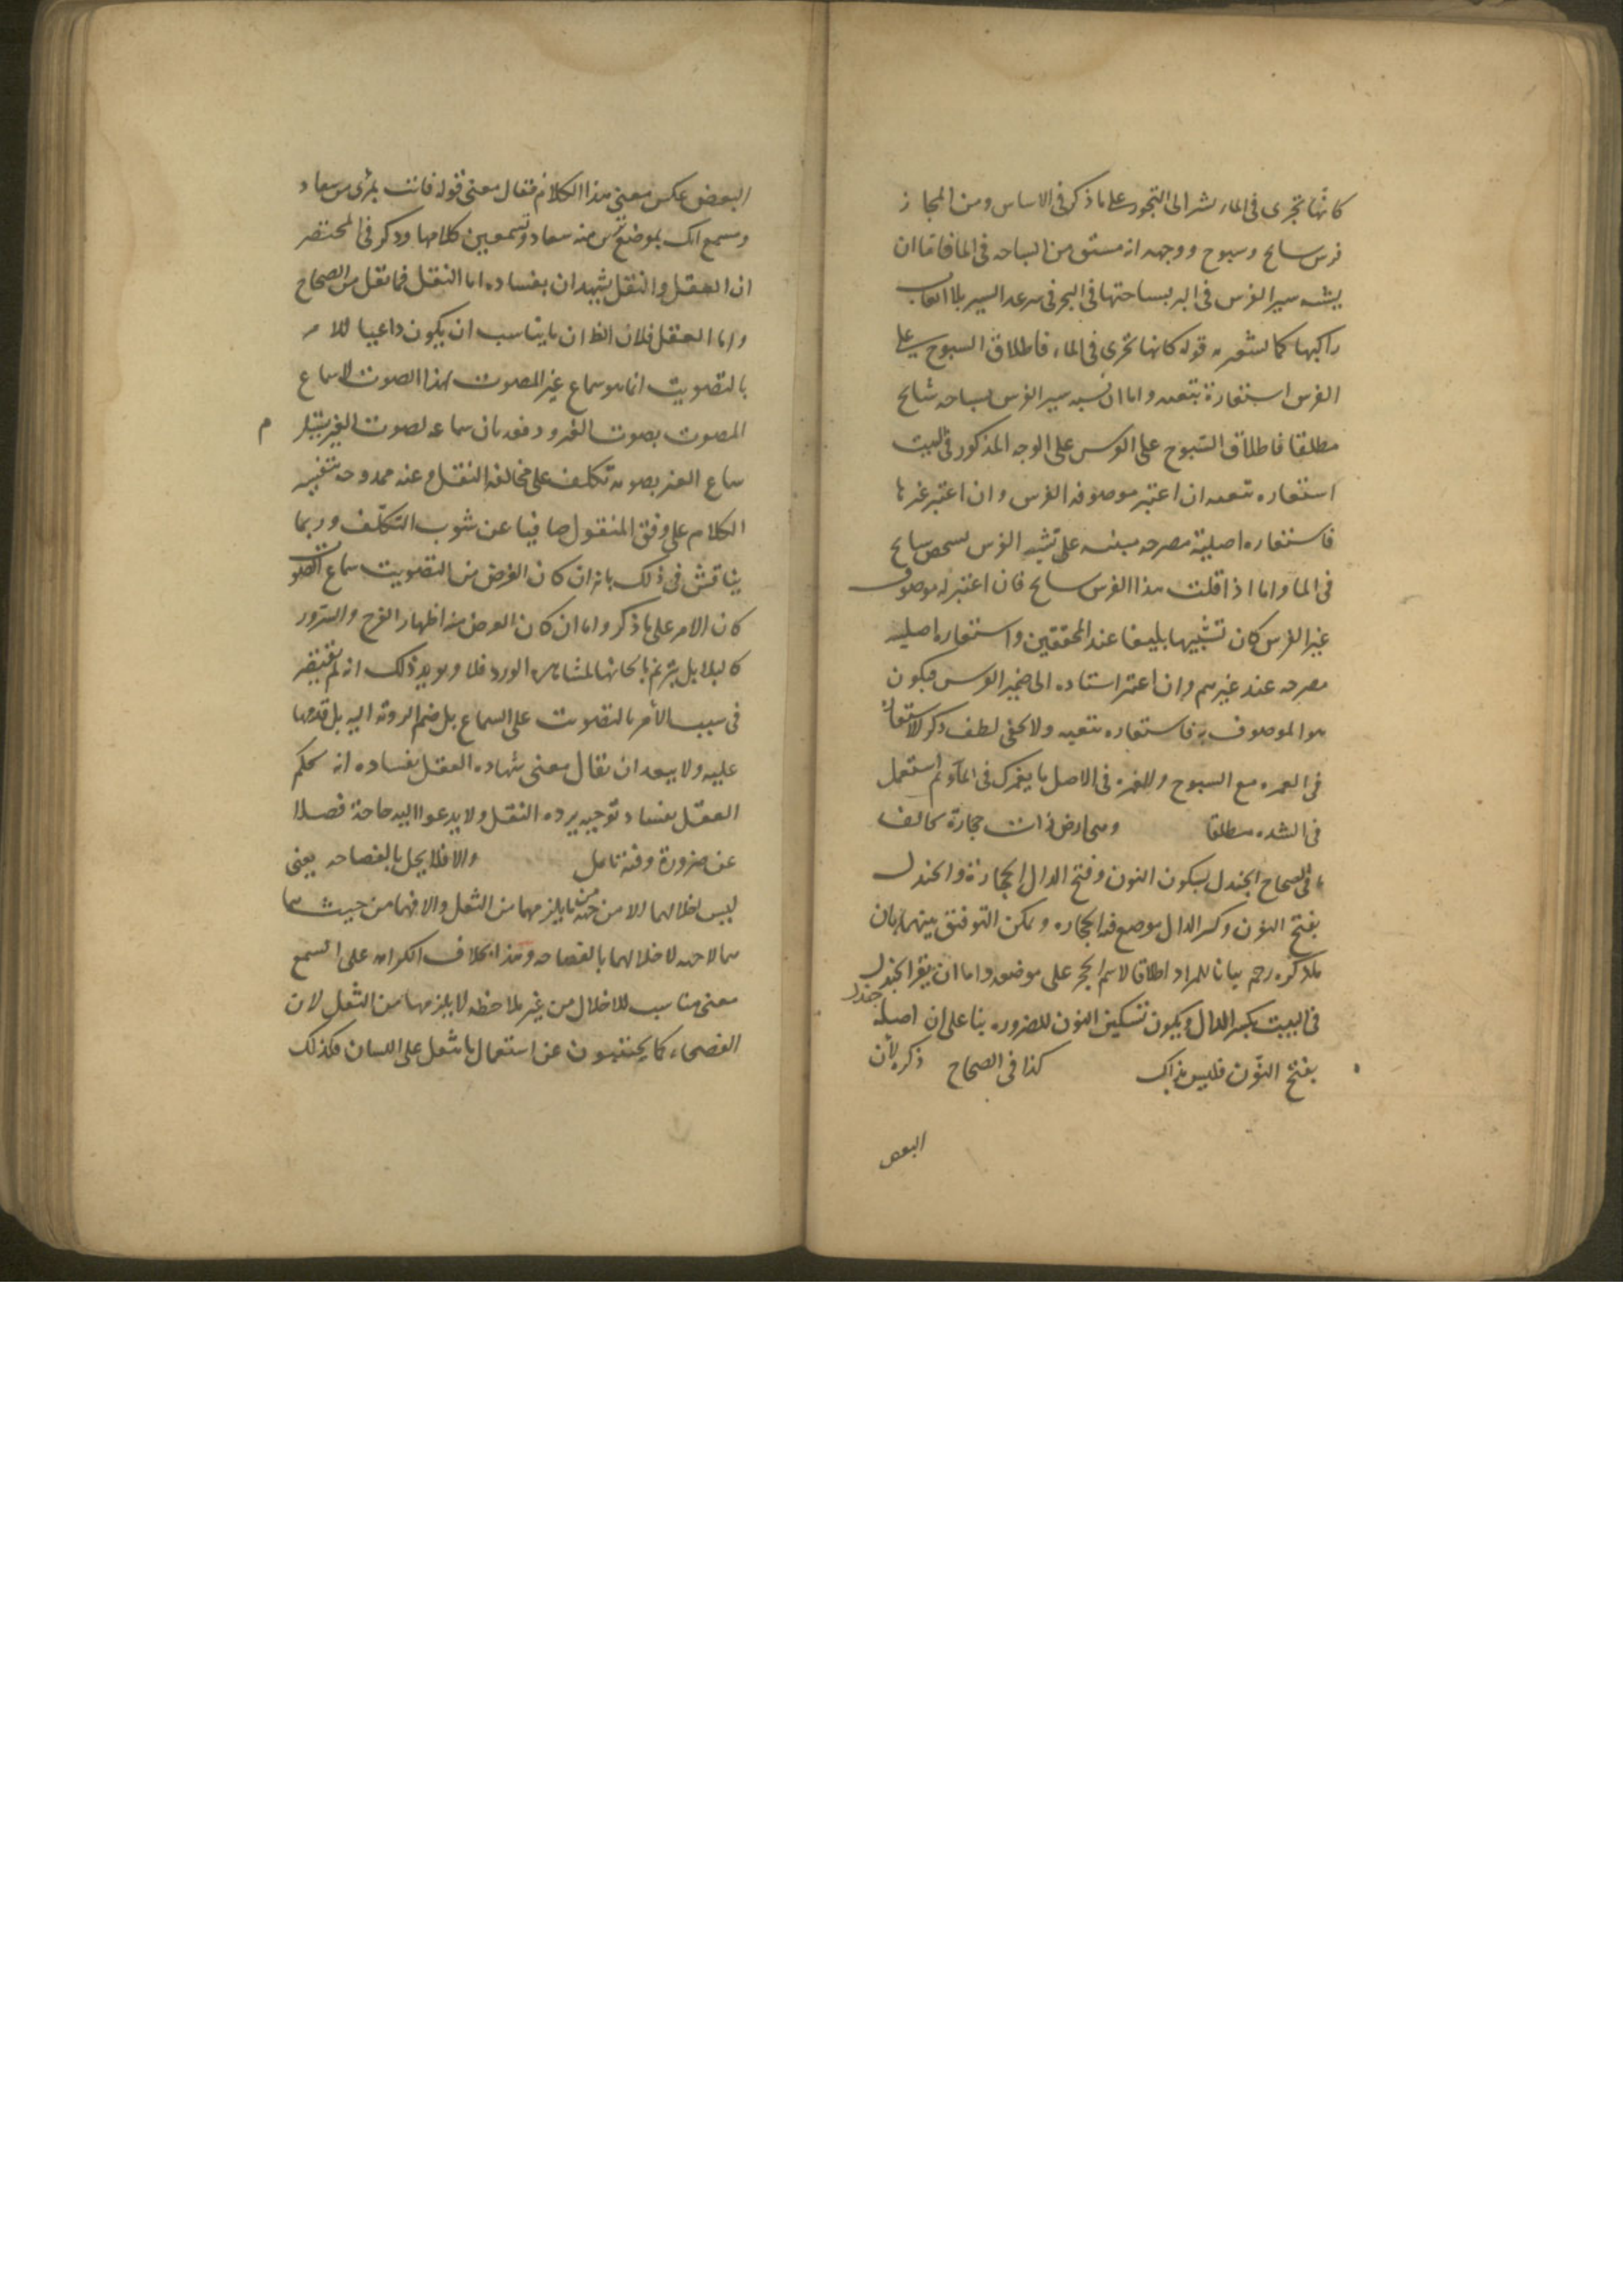 كانها تجرى فى الماء يشير الى التجوز على ما ذكر فى الاساس ومن المجاز
فرس سابح وسبوح ووجهه انه مشتق من السباحه فى الماء فاما ان
يشبه سير الفرس فى البر بسباحتها فى البحر فى سرعه السير بلا اتعاب
راكبها كما يشعر به قوله كانها تجرى فى الماء فاطلاق السبوح على
الفرس استعارة تبعيه واما ان يشبه سير الفرس بسباحه سابح
مطلقا فاطلاق السبوح على الفرس على الوجه المذكور فى البيت
استعاره تبعيه ان اعتبر موصوفه الفرس وان اعتبر غيرها
فاستعاره اصلية مصرحه مبنيه على تشبيه الفرس بشخص سابح
فى الماء واما اذا قلت هذا الفرس سابح فان اعتبر له موصوف
غير الفرس كان تشبيها بليغا عند المحققين واستعاره اصليه
مصرحه عند غيرهم وان اعتبر اسناده الى ضمير الفرس فيكون
هو الموصوف به فاستعاره تبعيه ولا يخفى لطف ذكر الاستعارة
فى الغمره مع السبوح والغمره فى الاصل ما يغمرك فى الماء ثم استعمل
فى الشده مطلقا وهى ارض ذات حجارة
فى الصحاح الجندل بسكون النون وفتح الدال الحجارة والجندل
بفتح النون وكسر الدال موضع فيه الحجاره ويمكن التوفيق بينهما بان
ما ذكره رحم بيانا للمراد اطلاقا لاسم الحجر على موضعه واما ان يقرا الجندل
فى البيت بكسر الدال ويكون تسكين النون للضروره بنا على ان اصله جندل
بفتح النون فليس بذاك كذا فى الصحاح ذكره لان
البعض
البعض عكس معنى هذا الكلام فقال معنى قوله فانت بمرأى من سعاد
ومسمع انك بموضع ترين منه سعاد وتسمعين كلامها وذكر فى المختصر
ان العقل والنقل يشهدان بفساده اما النقل فما نقل من الصحاح
واما العقل فلان الظ ان ما يناسب ان يكون داعيا للامر
بالتصويت انما هو سماع غير المصوت لهذا الصوت لا سماع
المصوت بصوت الغير ودفعه بان سماعه لصوت الغير
سماع الغير بصوته تكلف على مخالفه النقل وعنه مندوحه بتفسير
الكلام على وفق المنقول صافيا عن شوب التكلف وربما
يناقش فى ذلك بانه ان كان الغرض من التصويت سماع الصوت
كان الامر على ما ذكر واما ان كان الغرض منه اظهار الفرح والسرور
كالبلابل يترنم بالحانها لمشاهده الورد فلا ويويد ذلك انه لم يقتصر
فى سبب الامر بالتصويت على السماع بل ضم الروية اليه بل قدمها
عليه ولا يبعد ان يقال معنى شهاده العقل بفساده انه يحكم
العقل بفساد توجيه يرده النقل ولا يدعوا اليه حاجة فضلا
عن ضرورة وفيه تامل والا فلا يخل بالفصاحه يعنى
ليس اخلالهما الا من حيث ما يلزمهما من الثقل والا فهما من حيث هما
هما لا جهه لاخلالهما بالفصاحه وهذا بخلاف الكراهه على السمع
معنى مناسب للاخلال من غير ملاحظه لما يلزمها من الثقل لان
الفصحاء كما يجتنبون عن استعمال ما ثقل على اللسان فكذلك